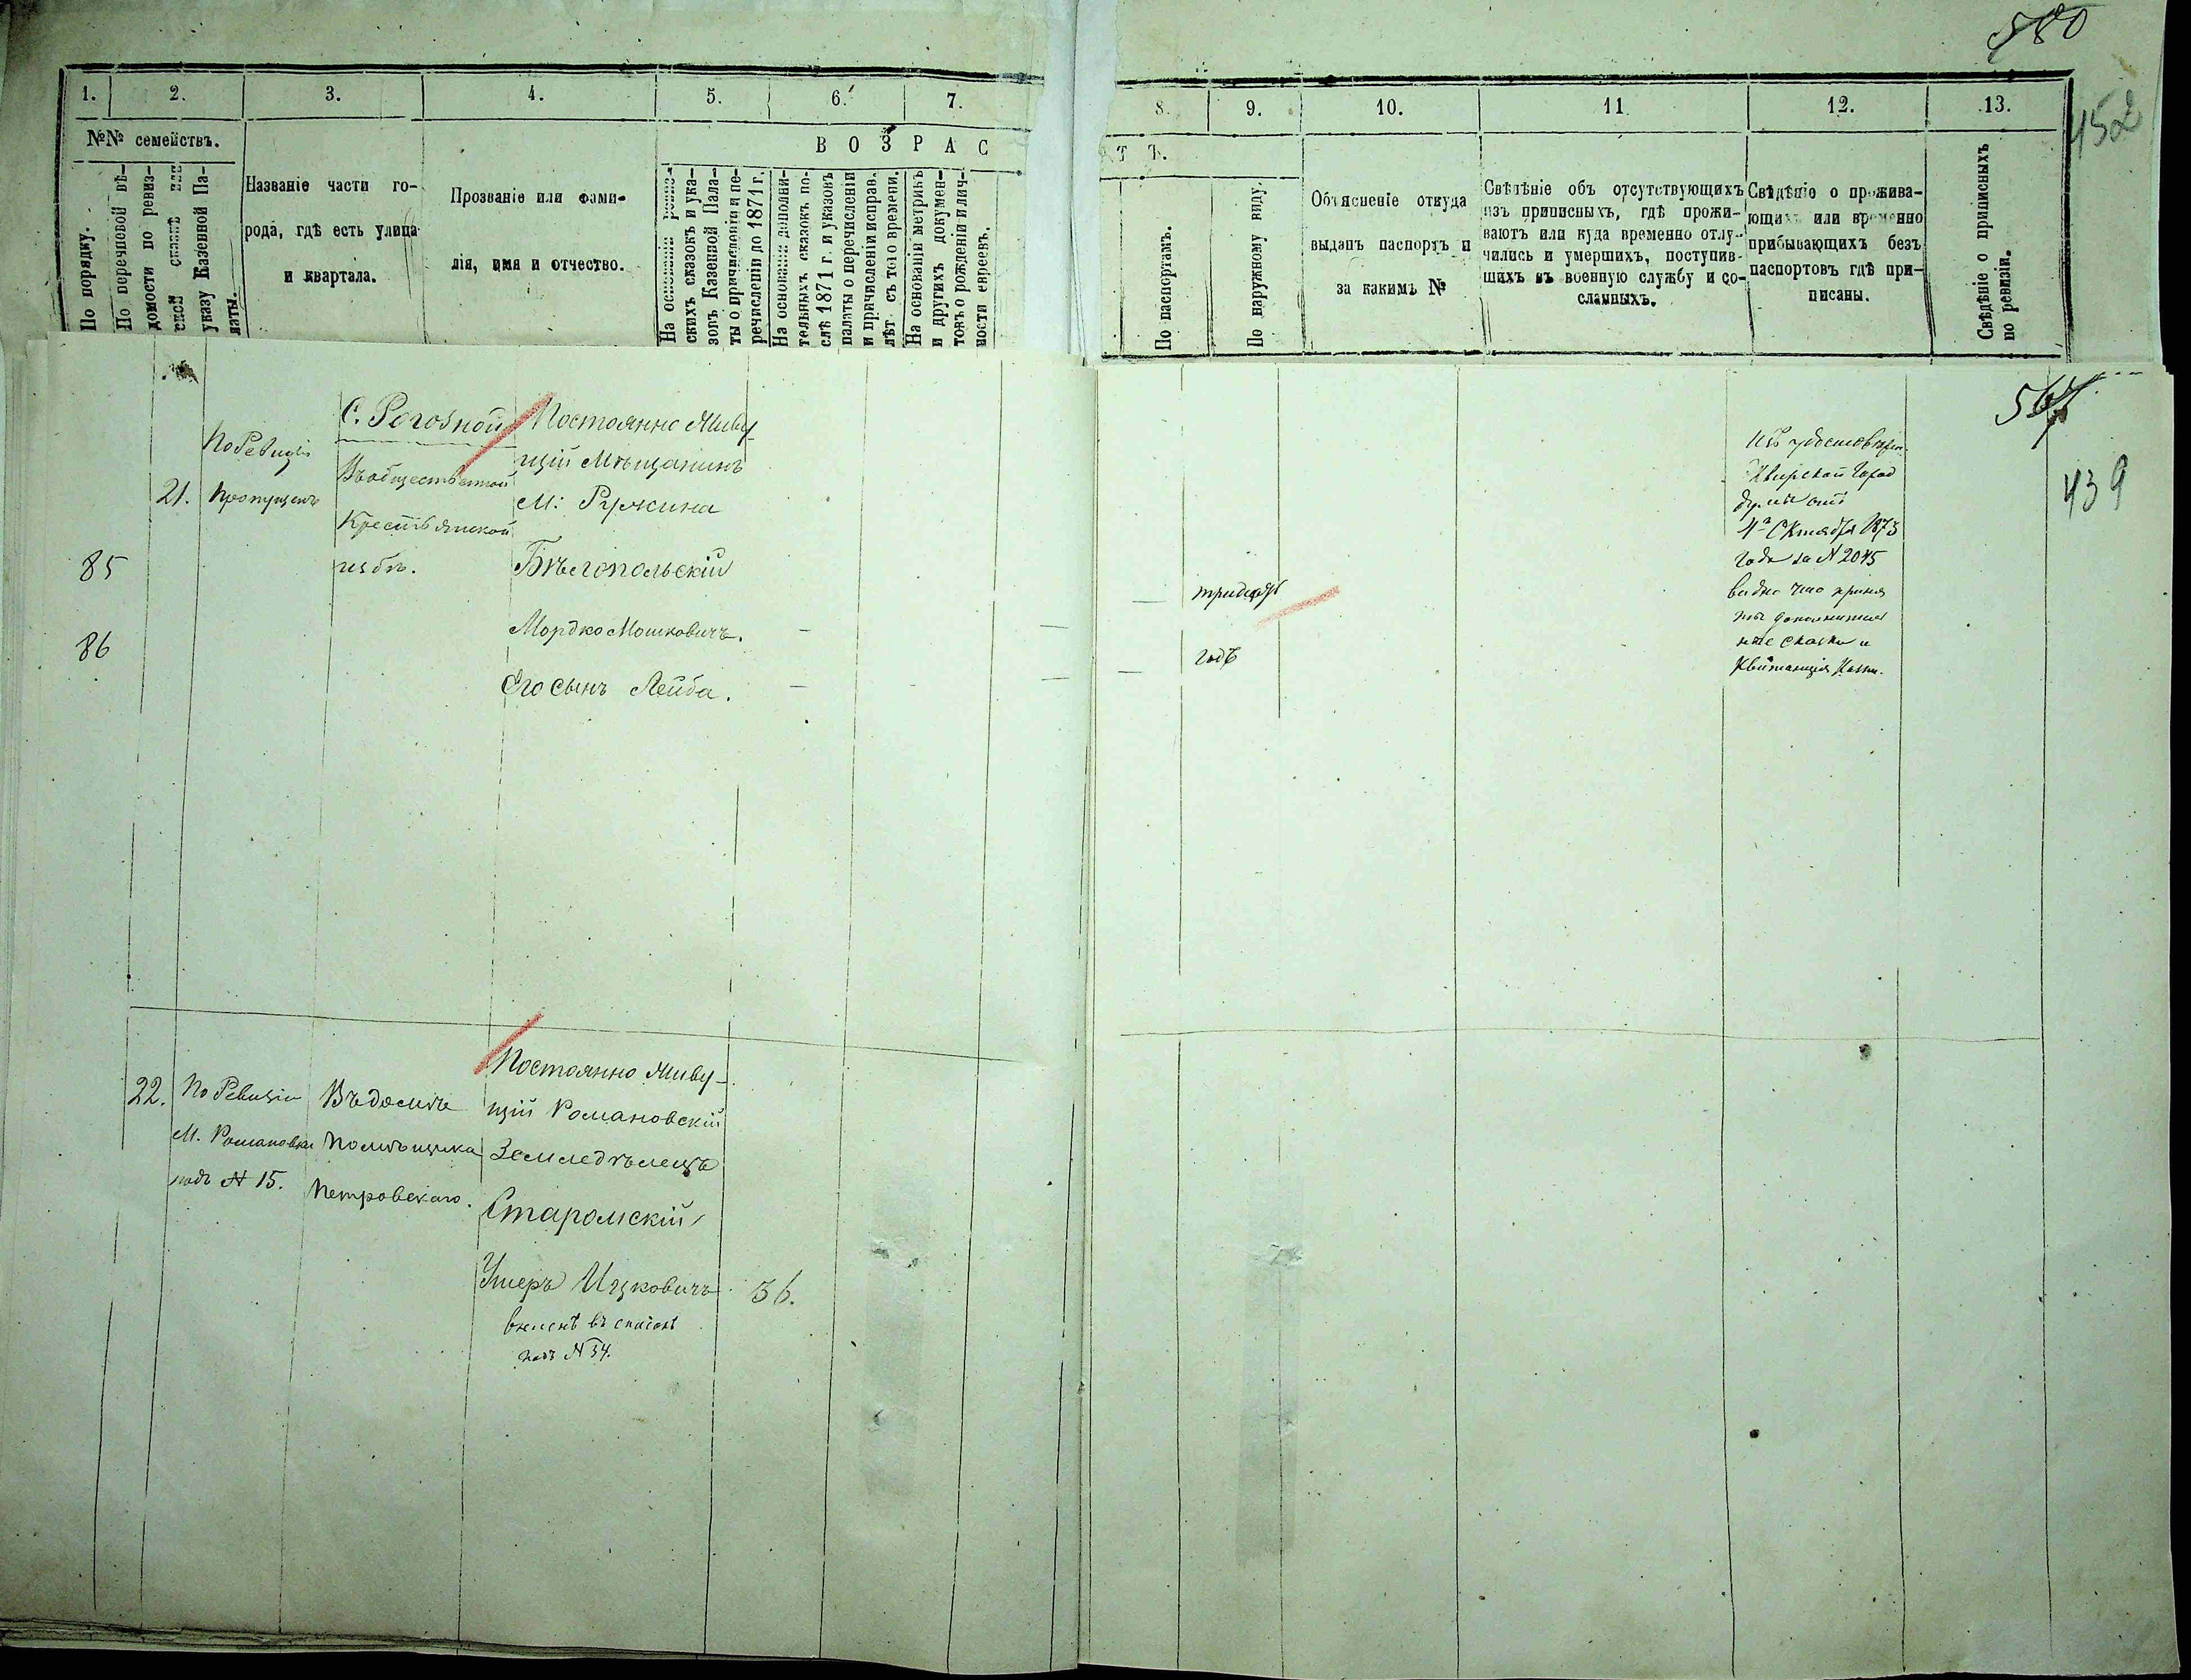 580
452
1. 2. 3. 4. 5. 6. 7. 8. 9. 10. 11. 12. 13.
№№ семействъ.
В О З Р А С Т Ъ.
По порядку.
По перечневой вѣ-
домости по ревиз-
ской сказкѣ или
указу Казенной Па-
латы.
Названіе части го-
рода, гдѣ есть улица
и квартала.
Прозваніе или фами-
лія, имя и отчество.
На основаніи ревиз-
скихъ сказокъ и ука-
зовъ Казенной Пала-
ты о причисленіи и пе-
речисленіи до 1871 г.
На основаніи дополни-
тельныхъ сказокъ по-
слѣ 1871 г. и указовъ
палаты о перечисленіи
и причисленіи исправ.
лѣт съ того времени.
На основаніи метрикъ
и другихъ докумен-
товъ о рожденіи и лич-
ности евреевъ.
По паспортамъ.
По наружному виду.
Объясненіе откуда
выданъ паспортъ и
за какимъ №
Свѣдѣніе объ отсутствующихъ
изъ приписныхъ, гдѣ прожи-
ваютъ или куда временно отлу-
чились и умершихъ, поступив-
шихъ въ военную службу и со-
сланныхъ.
Свѣдѣніе о прожива-
ющихъ или временно
прибывающихъ безъ
паспортовъ гдѣ при-
писаны.
Свѣдѣніе о приписныхъ
по ревизіи.
567
439
85
86
21.
По Ревизіи
пропущенъ
С. Роговной
Въ общественной
Крестьянской
избѣ.
Постоянно Живу-
щій Мѣщанинъ
М: Ружина
Бѣлопольскій
Мордко Мошковичъ.
Его сынъ Лейба.
тридцать
годъ
Изъ удостовѣрен.
Сквирской Город
думы отъ
4го Октября 1873
года за № 2045
видно что приня
ты дополнитель
ные сказки и
Квитанція Казн.
22.
По Ревизіи
М. Романовки
подъ № 15.
Въ домѣ
помѣщика
Петровскаго.
Постоянно Живу-
щій Романовскій
Земледѣлецъ
Старомскій
Ушеръ Ицковичъ 36.
въ списокъ
подъ № 34.